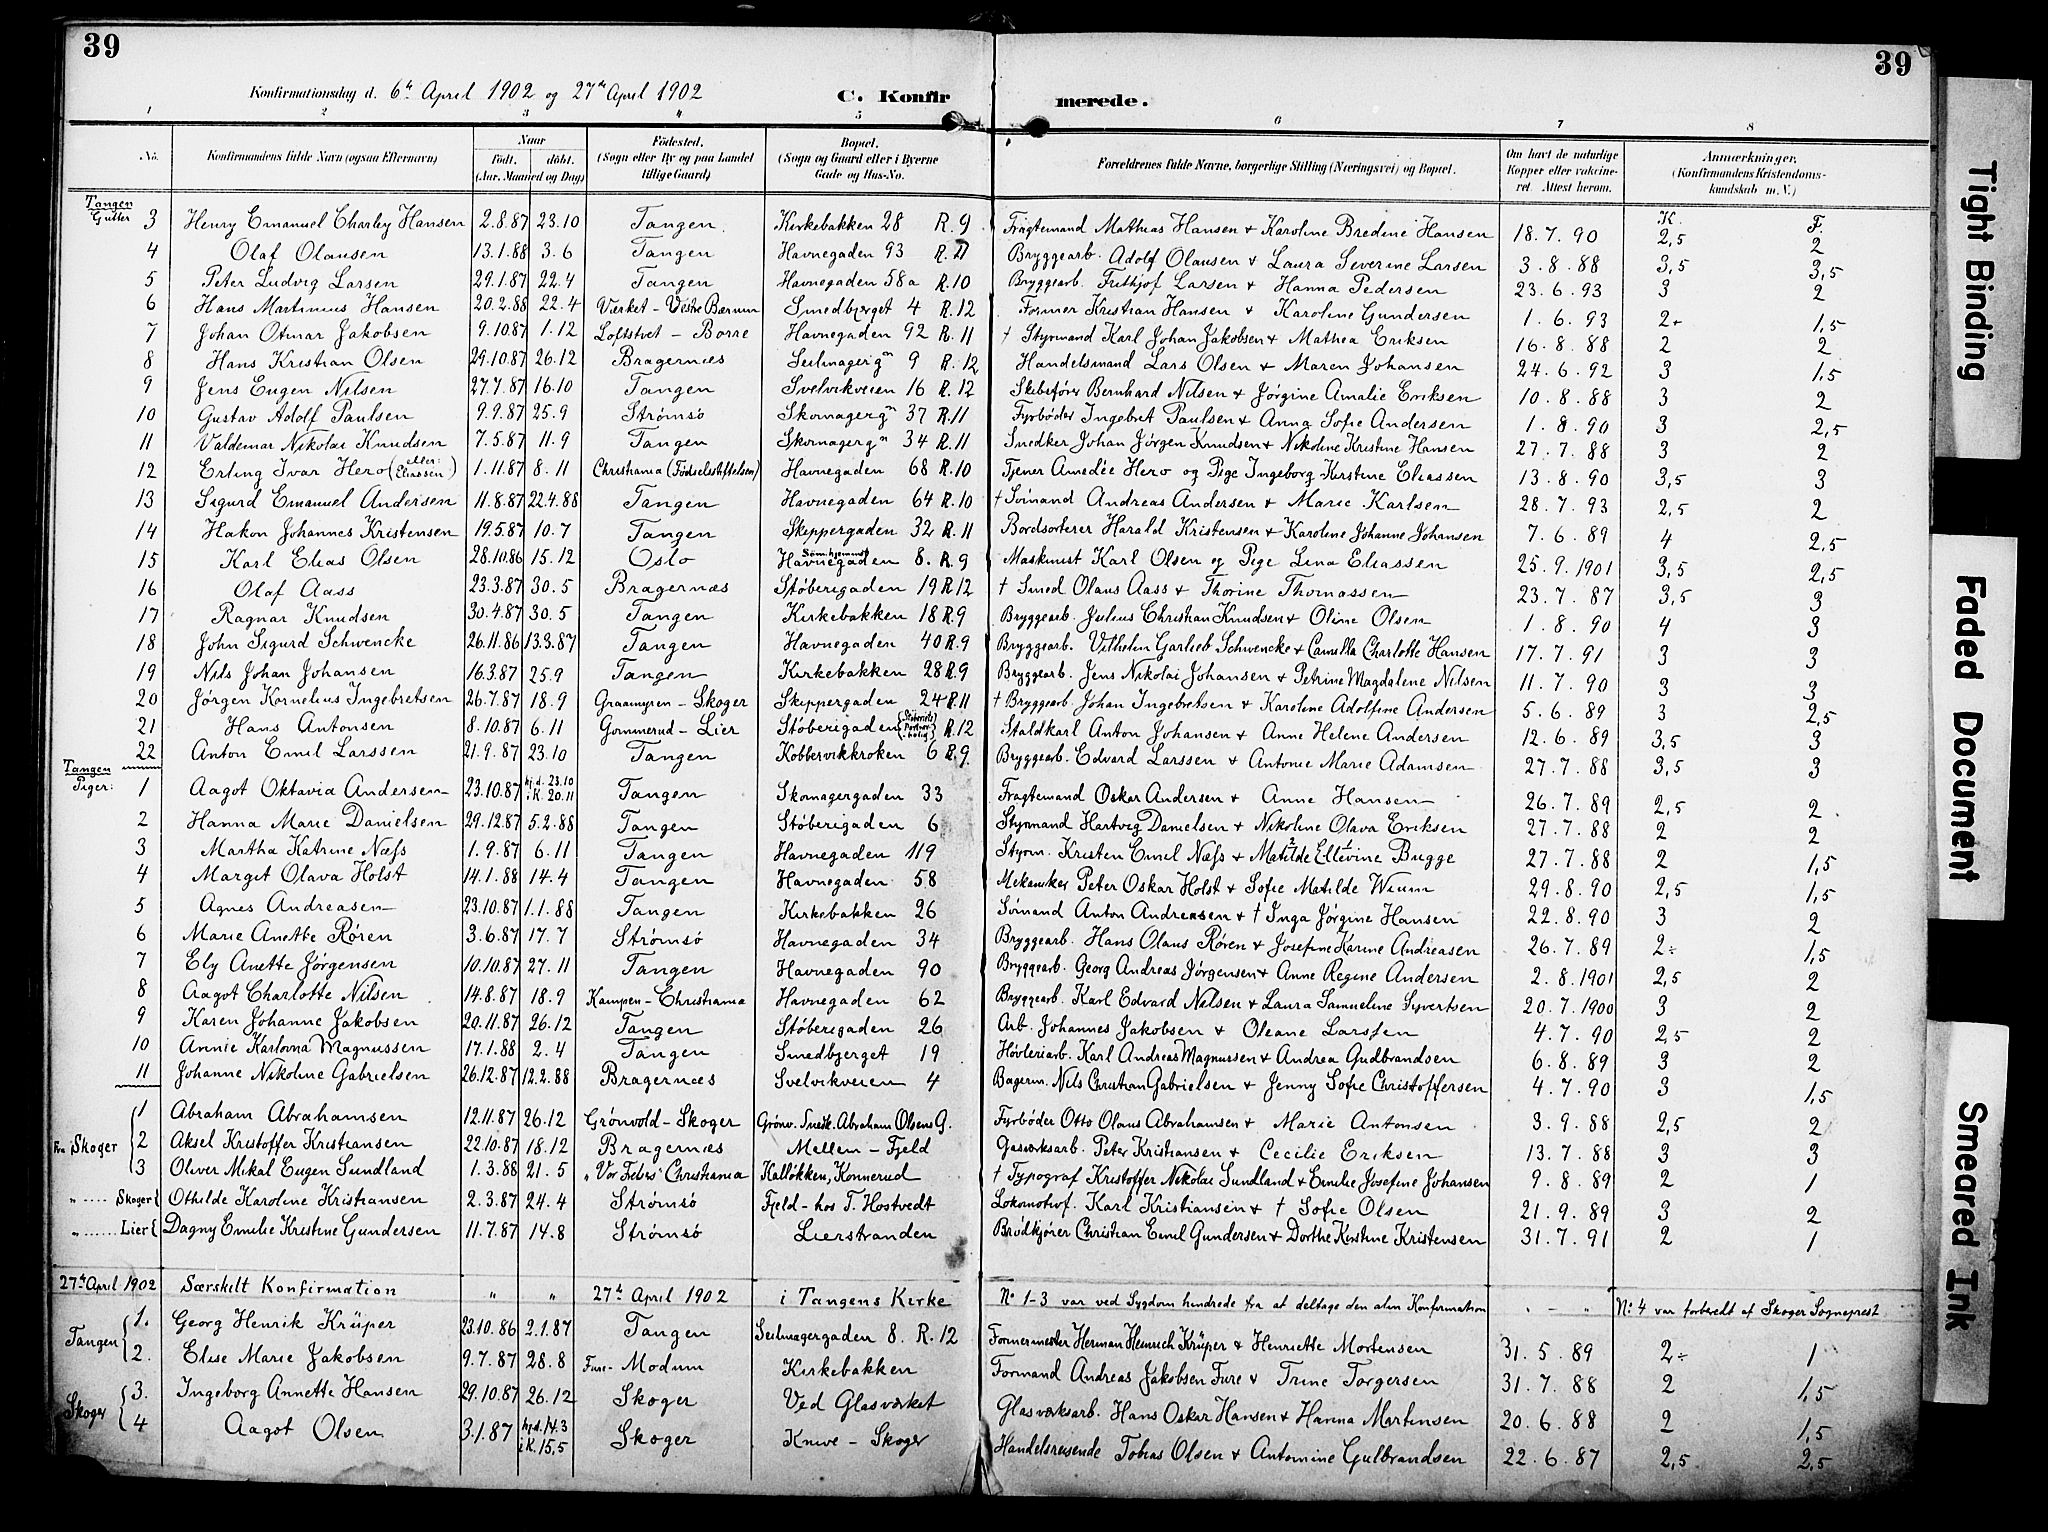 39
39
Konfirmationsdag d. 6te April 1902 og 27de April 1902 C. Konfirmerede.
1 2 3 4 5 6 7 8
No. Konfirmandens fulde Navn (ogsaa Efternavn) Naar født. døbt. (Aar, Maaned og Dag) Fødested. (Sogn eller By og paa Landet tillige Gaard) Bopæl. (Sogn og Gaard eller i Byerne Gade og Hus-No. Forældrenes fulde Navne, borgerlige Stilling (Næringsvei) og Bopæl. Om havt de naturlige Kopper eller vaccineret. Attest herom. Anmærkninger. (Konfirmandens Kristendomskundskab m. V.)
Tangen Gutter K. F.
3 Henry Emanuel Charley Hansen 2.8.87 23.10 Tangen Kirkebakken 28 R. 9 Fragtemand Mathias Hansen + Karoline Bredine Hansen 18.7.90 2,5 2
4 Olaf Olausen 13.1.88 3.6 Tangen Havnegaden 93 R. 11 Bryggearb. Adolf Olausen + Laura Severine Larsen 3.8.88 3,5 3,5
5 Peter Ludvig Larsen 29.1.87 22.4 Tangen Havnegaden 58a R. 10 Bryggearb. Frithjof Larsen + Hanna Pedersen 23.6.93 3 2
6 Hans Martinius Hansen 20.2.88 22.4 Værket - Vestre Bærum Smedbjerget 4 R. 12 Former Kristian Hansen + Karoline Gundersen 1.6.93 2+ 1,5
7 Johan Otmar Jakobsen 9.10.87 1.12 Loftstvet - Borre Havnegaden 92 R. 11 † Styrmand Karl Johan Jakobsen + Mathea Eriksen 16.8.88 2 2
8 Hans Kristian Olsen 29.10.87 26.12 Bragernæs Seilmagerg n 9 R. 12 Handelsmand Lars Olsen + Maren Johansen 24.6.92 3 1,5
9 Jens Eugen Nilsen 27.7.87 16.10 Tangen Svelvikveien 16 R. 12 Skibsfører Bernhard Nilsen + Jørgine Amalie Eriksen 10.8.88 3 2
10 Gustav Adolf Paulsen 9.9.87 25.9 Strømsø Skomagerg n 37 R. 11 Fyrbøder Ingebret Paulsen + Anna Sofie Andersen 1.8.90 3 2,5
11 Valdemar Nikolai Knudsen 7.5.87 11.9 Tangen Skomagerg n 34 R. 11 Snedker Johan Jørgen Knudsen + Nikoline Kristine Hansen 27.7.88 3 2
12 Erling Ivar Hero (eller: Eliasen) 1.11.87 8.11 Christiania (Fødselsstiftelsen) Havnegaden 68 R. 10 Tjener Amedée Hero og Pige Ingeborg Kirstine Eliassen 13.8.90 3,5 3
13 Sigurd Emanuel Andersen 11.8.87 22.4.88 Tangen Havnegaden 64 R. 10 † Sømand Andreas Andersen + Marie Karlsen 28.7.93 2,5 2
14 Hakon Johannes Kristensen 19.5.87 10.7 Tangen Skippergaden 32 R. 11 Bordsorterer Harald Kristensen + Karoline Johanne Johansen 7.6.89 4 2,5
15 Karl Elias Olsen 28.10.86 15.12 Oslo Sømhjemmet Havnegaden 8. R. 9 Maskinist Karl Olsen og Pige Lina Eliassen 25.9.1901 3,5 2,5
16 Olaf Aass 23.3.87 30.5 Bragernæs Støberigaden 19 R. 12 † Smed Olaus Aass + Thorine Thomassen 23.7.87 3,5 3
17 Ragnar Knudsen 30.4.87 30.5 Tangen Kirkebakken 18 R. 9 Bryggearb. Julius Christian Knudsen + Oline Olsen 1.8.90 4 3
18 John Sigurd Schwencke 26.11.86 13.3.87 Tangen Havnegaden 40 R. 9 Bryggearb. Vilhelm Garlieb Schwencke + Camilla Charlotte Hansen 17.7.91 3 3
19 Nils Johan Johansen 16.3.87 25.9 Tangen Kirkebakken 28 R. 9 Bryggearb. Jens Nikolai Johansen + Petrine Magdalene Nilsen 11.7.90 3 3
20 Jørgen Kornelius Ingebretsen 26.7.87 18.9 Graamyren - Skoger Skippergaden 24 R. 11 † Bryggearb. Johan Ingebretsen + Karoline Adolfine Andersen 5.6.89 3 2,5
21 Hans Antonsen 8.10.87 6.11 Gommerud - Lier Støberigaden (Støberiets Portnerbolig) R. 12 Staldkarl Anton Johansen + Anne Helene Andersen 12.6.89 3,5 3
22 Anton Emil Larssen 21.9.87 23.10 Tangen Kobbervikkroken 6 R. 9 Bryggearb. Edvard Larssen + Antonie Marie Adamsen 27.7.88 3,5 3
Tangen Piger:
1 Aagot Oktavia Andersen 23.10.87 hj.d. 23.10 i K. 20.11 Tangen Skomagergaden 33 Fragtemand Oskar Andersen + Anne Hansen 26.7.89 2,5 2
2 Hanna Marie Danielsen 29.12.87 5.2.88 Tangen Støberigaden 6 Styrmand Hartvig Danielsen + Nikoline Olava Eriksen 27.7.88 2 2
3 Martha Katrine Næss 1.9.87 6.11 Tangen Havnegaden 119 Styrm. Kristen Emil Næss + Matilde Ellevine Bugge 27.7.88 2 1,5
4 Margit Olava Holst 14.1.88 14.4 Tangen Havnegaden 58 Mekaniker Peter Oskar Holst + Sofie Matilde Wium 29.8.90 2,5 1,5
5 Agnes Andreasen 23.10.87 1.1.88 Tangen Kirkebakken 26 Sømand Anton Andreasen + † Inga Jørgine Hansen 22.8.90 3 2
6 Marie Anette Røren 3.6.87 17.7 Strømsø Havnegaden 34 Bryggearb. Hans Olaus Røren + Josefine Karine Andreasen 26.7.89 2÷ 1,5
7 Ely Anette Jørgensen 10.10.87 27.11 Tangen Havnegaden 90 Bryggearb. Georg Andreas Jørgensen + Anne Regine Andersen 2.8.1901 2,5 2
8 Aagot Charlotte Nilsen 14.8.87 18.9 Kampen - Christiania Havnegaden 62 Bryggearb. Karl Edvard Nilsen + Laura Samueline Syvertsen 20.7.1900 3 2
9 Karen Johanne Jakobsen 20.11.87 26.12 Tangen Støberigaden 26 Arb. Johannes Jakobsen + Oleane Larssen 4.7.90 2,5 2
10 Annie Karlovna Magnussen 17.1.88 2.4 Tangen Smedbjerget 19 Høvleriarb. Karl Andreas Magnussen + Andrea Gudbrandsen 6.8.89 3 2
11 Johanne Nikoline Gabrielsen 26.12.87 12.2.88 Bragernæs Svelvikveien 4 Bagerm. Nils Christian Gabrielsen + Jenny Sofie Christoffersen 4.7.90 3 1,5
Fra Skoger
1 Abraham Abrahamsen 12.11.87 26.12 Grønvold - Skoger Grønv. Snedk. Abraham Olsens G. Fyrbøder Otto Olaus Abrahamsen + Marie Antonsen 3.9.88 2,5 2
2 Aksel Kristoffer Kristiansen 22.10.87 18.12 Bragernæs Mellem - Fjeld Gasværksarb. Peter Kristiansen + Cecilie Eriksen 13.7.88 3 3
3 Oliver Mikal Eugen Sundland 1.3.88 21.5 "Vor Frelsers" Christiania Kalløkken, Konnerud † Typograf Kristoffer Nikolai Sundland + Emilie Josefine Johansen 9.8.89 2 1
" ..... Skoger Othilde Karoline Kristiansen 2.3.87 24.4 Strømsø Fjeld - hos T. Hostvedt Lokomotivf. Karl Kristiansen + † Sofie Olsen 21.9.89 3 2
" ..... Lier Dagny Emilie Kristine Gundersen 11.7.87 14.8 Strømsø Lierstranden Brødkjører Christian Emil Gundersen + Dorthe Kirstine Kristensen 31.7.91 2 1
27de April 1902 Særskilt Konfirmation " " 27de April 1902 i Tangens Kirke No 1-3 var ved Sygdom hindrede fra at deltage den alm Konfirmation " - " No 4 var forberedt af Skoger Sogneprest
Tangen
1. Georg Henrik Krüper 23.10.86 2.1.87 Tangen Seilmagergaden 8. R. 12 Formermester Herman Heinrich Krüper + Henriette Mortensen 31.5.89 2÷ 1
2. Elise Marie Jakobsen 9.7.87 28.8 Fure - Modum Kirkebakken Formand Andreas Jakobsen Fure + Trine Torgersen 31.7.88 2 1,5
Skoger
3. Ingeborg Annette Hansen 29.10.87 26.12 Skoger Ved Glasværket Glasværksarb. Hans Oskar Hansen + Hanna Martinsen 20.6.88 2 1,5
4 Aagot Olsen 3.1.87 hj.d. 14.3 i K. 15.5 Skoger Knive - Skoger Handelsreisende Tobias Olsen + Antomine Gulbrandsen 22.6.87 2,5 2,5
Tight Binding
Faded Document
Smeared Ink